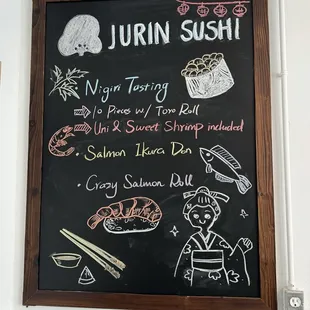 JURIN SUSHI
Nigiri Tasting
10 Pieces w/ Toro Roll
Uni & Sweet Shrimp included
• Salmon Ikura Don
• Crazy Salmon Roll